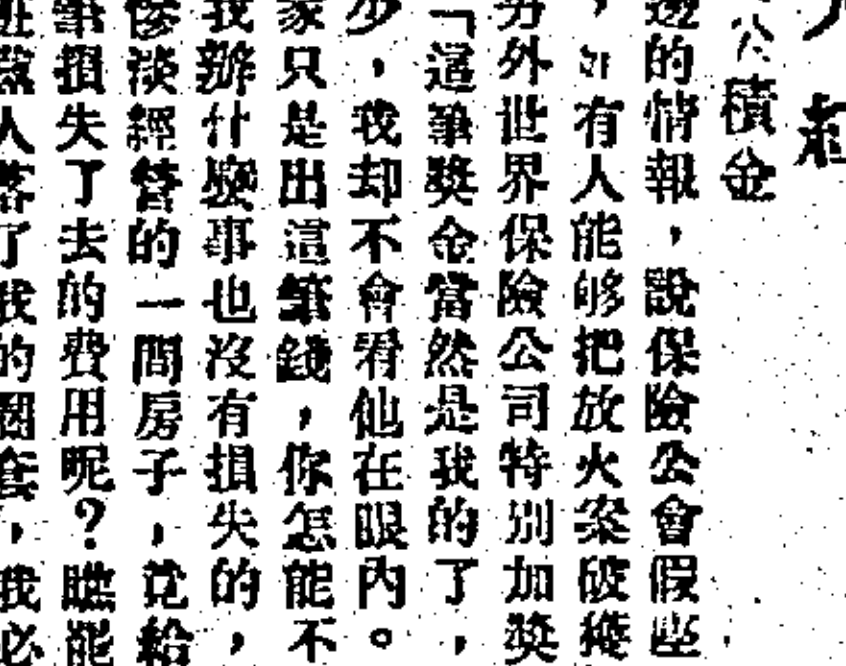 公積金
邊的情報，說保險公會假
，如有人能够把放火案破獲
另外世界保險公司特別加獎
「這筆獎金當然是我的了，
少，我却不會看他在眼內。
家只是出這筆錢，你怎能不
我辦什麼事也沒有損失的，
慘淡經營的一間房子，竟給
筆損失了去的費用呢？瞧罷
人落了我的圈套，我必